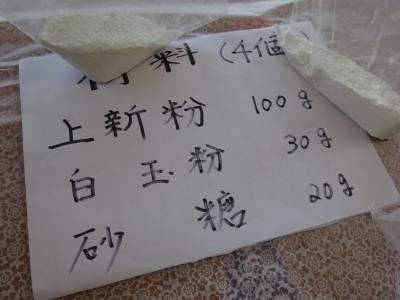 材料(4個
上新粉 100g
白玉粉 30g
砂糖 20g